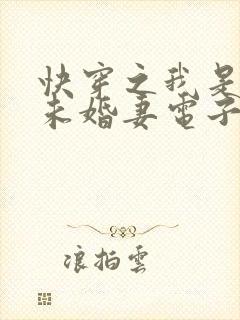 快穿之我是
未婚妻電子
浪拍雲